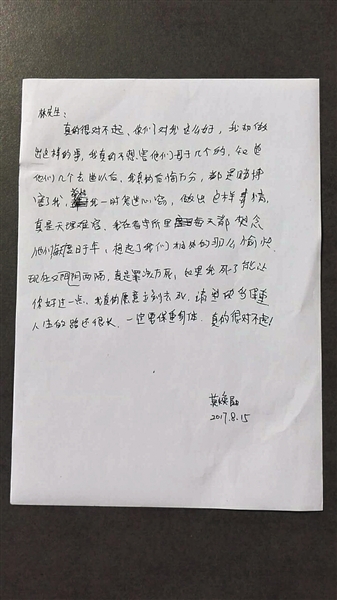 林先生:
真的很对不起、你们对我这么好,我却做
出这样的事,我真的不想害他们母子几个的,知道
他们几个去世以后,我真的后悔万分,都是赌博
害了我,我一时鬼迷心窍,做出这样事情,
真是天理难容。我在看守所里每天都想念
他们母子,想起了我们相处的那么愉快
现在又阴阳两隔,真是罪该万死,如果我死了能让
你好过一点,我真的愿意立刻去死,请
人生的路还很长,一定要保重身体,真的很对不起!
莫焕晶
2017.8.15